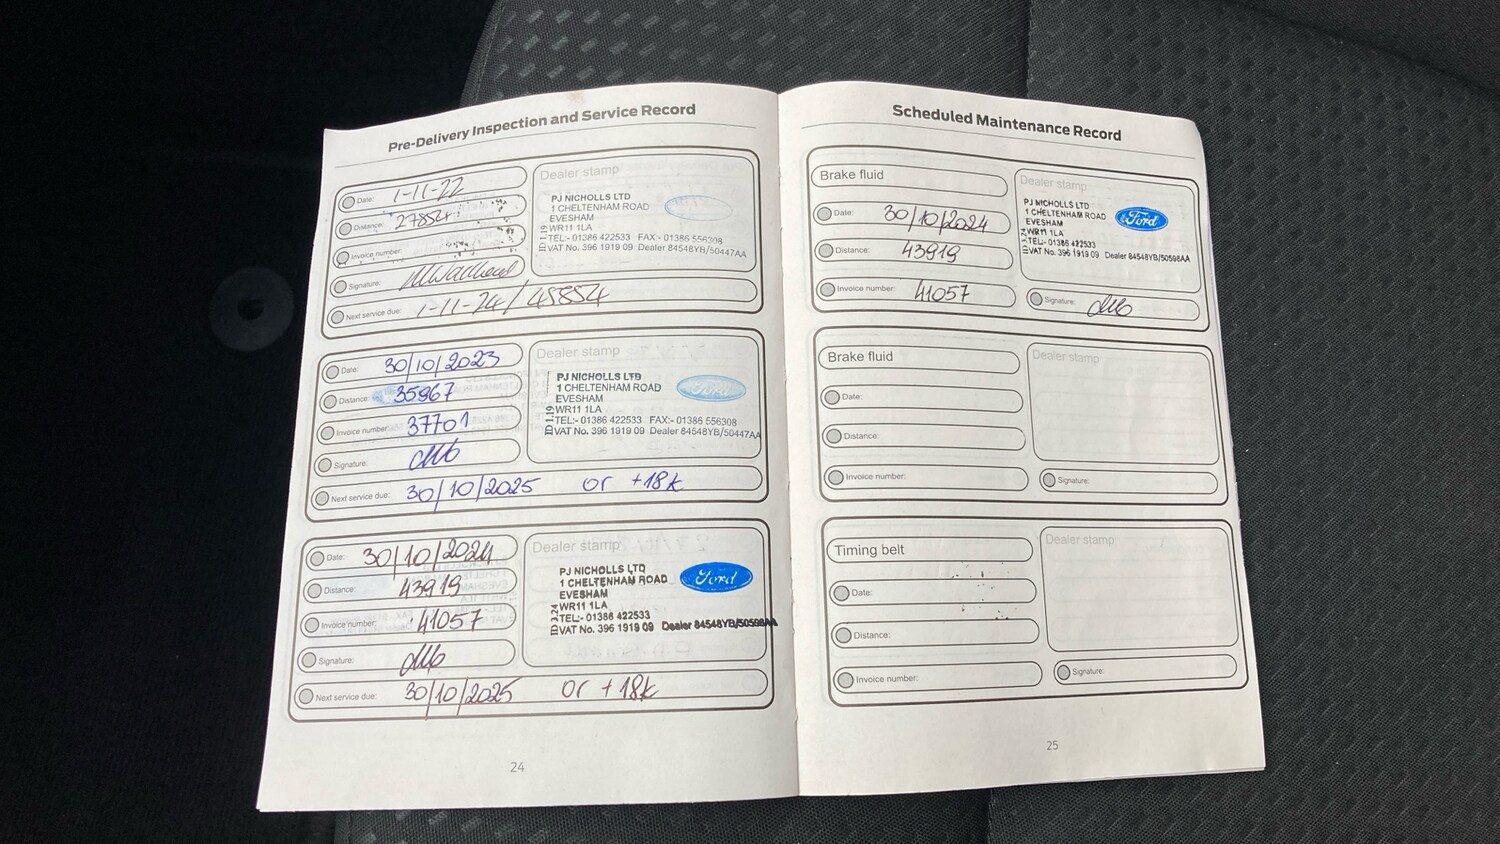 Pre-Delivery Inspection and Service Record
Date: 1-11-22
Distance: 27854
Invoice number:
Signature:
Next service due: 1-11-24 / 45854
Dealer stamp
PJ NICHOLLS LTD
1 CHELTENHAM ROAD
EVESHAM
WR11 1LA
TEL:- 01386 422533 FAX:- 01386 556308
VAT No. 396 1919 09 Dealer 84548YB/50447AA
ID 1.19
Date: 30/10/2023
Distance: 35967
Invoice number: 37701
Signature:
Next service due: 30/10/2025 or +18k
Dealer stamp
PJ NICHOLLS LTD
1 CHELTENHAM ROAD
EVESHAM
WR11 1LA
TEL:- 01386 422533 FAX:- 01386 556308
VAT No. 396 1919 09 Dealer 84548YB/50447AA
ID 1.19
Ford
Date: 30/10/2024
Distance: 43919
Invoice number: 41057
Signature:
Next service due: 30/10/2025 or +18k
Dealer stamp
PJ NICHOLLS LTD
1 CHELTENHAM ROAD
EVESHAM
WR11 1LA
TEL:- 01386 422533
VAT No. 396 1919 09 Dealer 84548YB/50598AA
Ford
24
Scheduled Maintenance Record
Brake fluid
Date: 30/10/2024
Distance: 43919
Invoice number: 41057
Dealer stamp
PJ NICHOLLS LTD
1 CHELTENHAM ROAD
EVESHAM
WR11 1LA
TEL:- 01386 422533
VAT No. 396 1919 09 Dealer 84548YB/50598AA
Ford
Signature:
Brake fluid
Date:
Distance:
Invoice number:
Dealer stamp
Signature:
Timing belt
Date:
Distance:
Invoice number:
Dealer stamp
Signature:
25